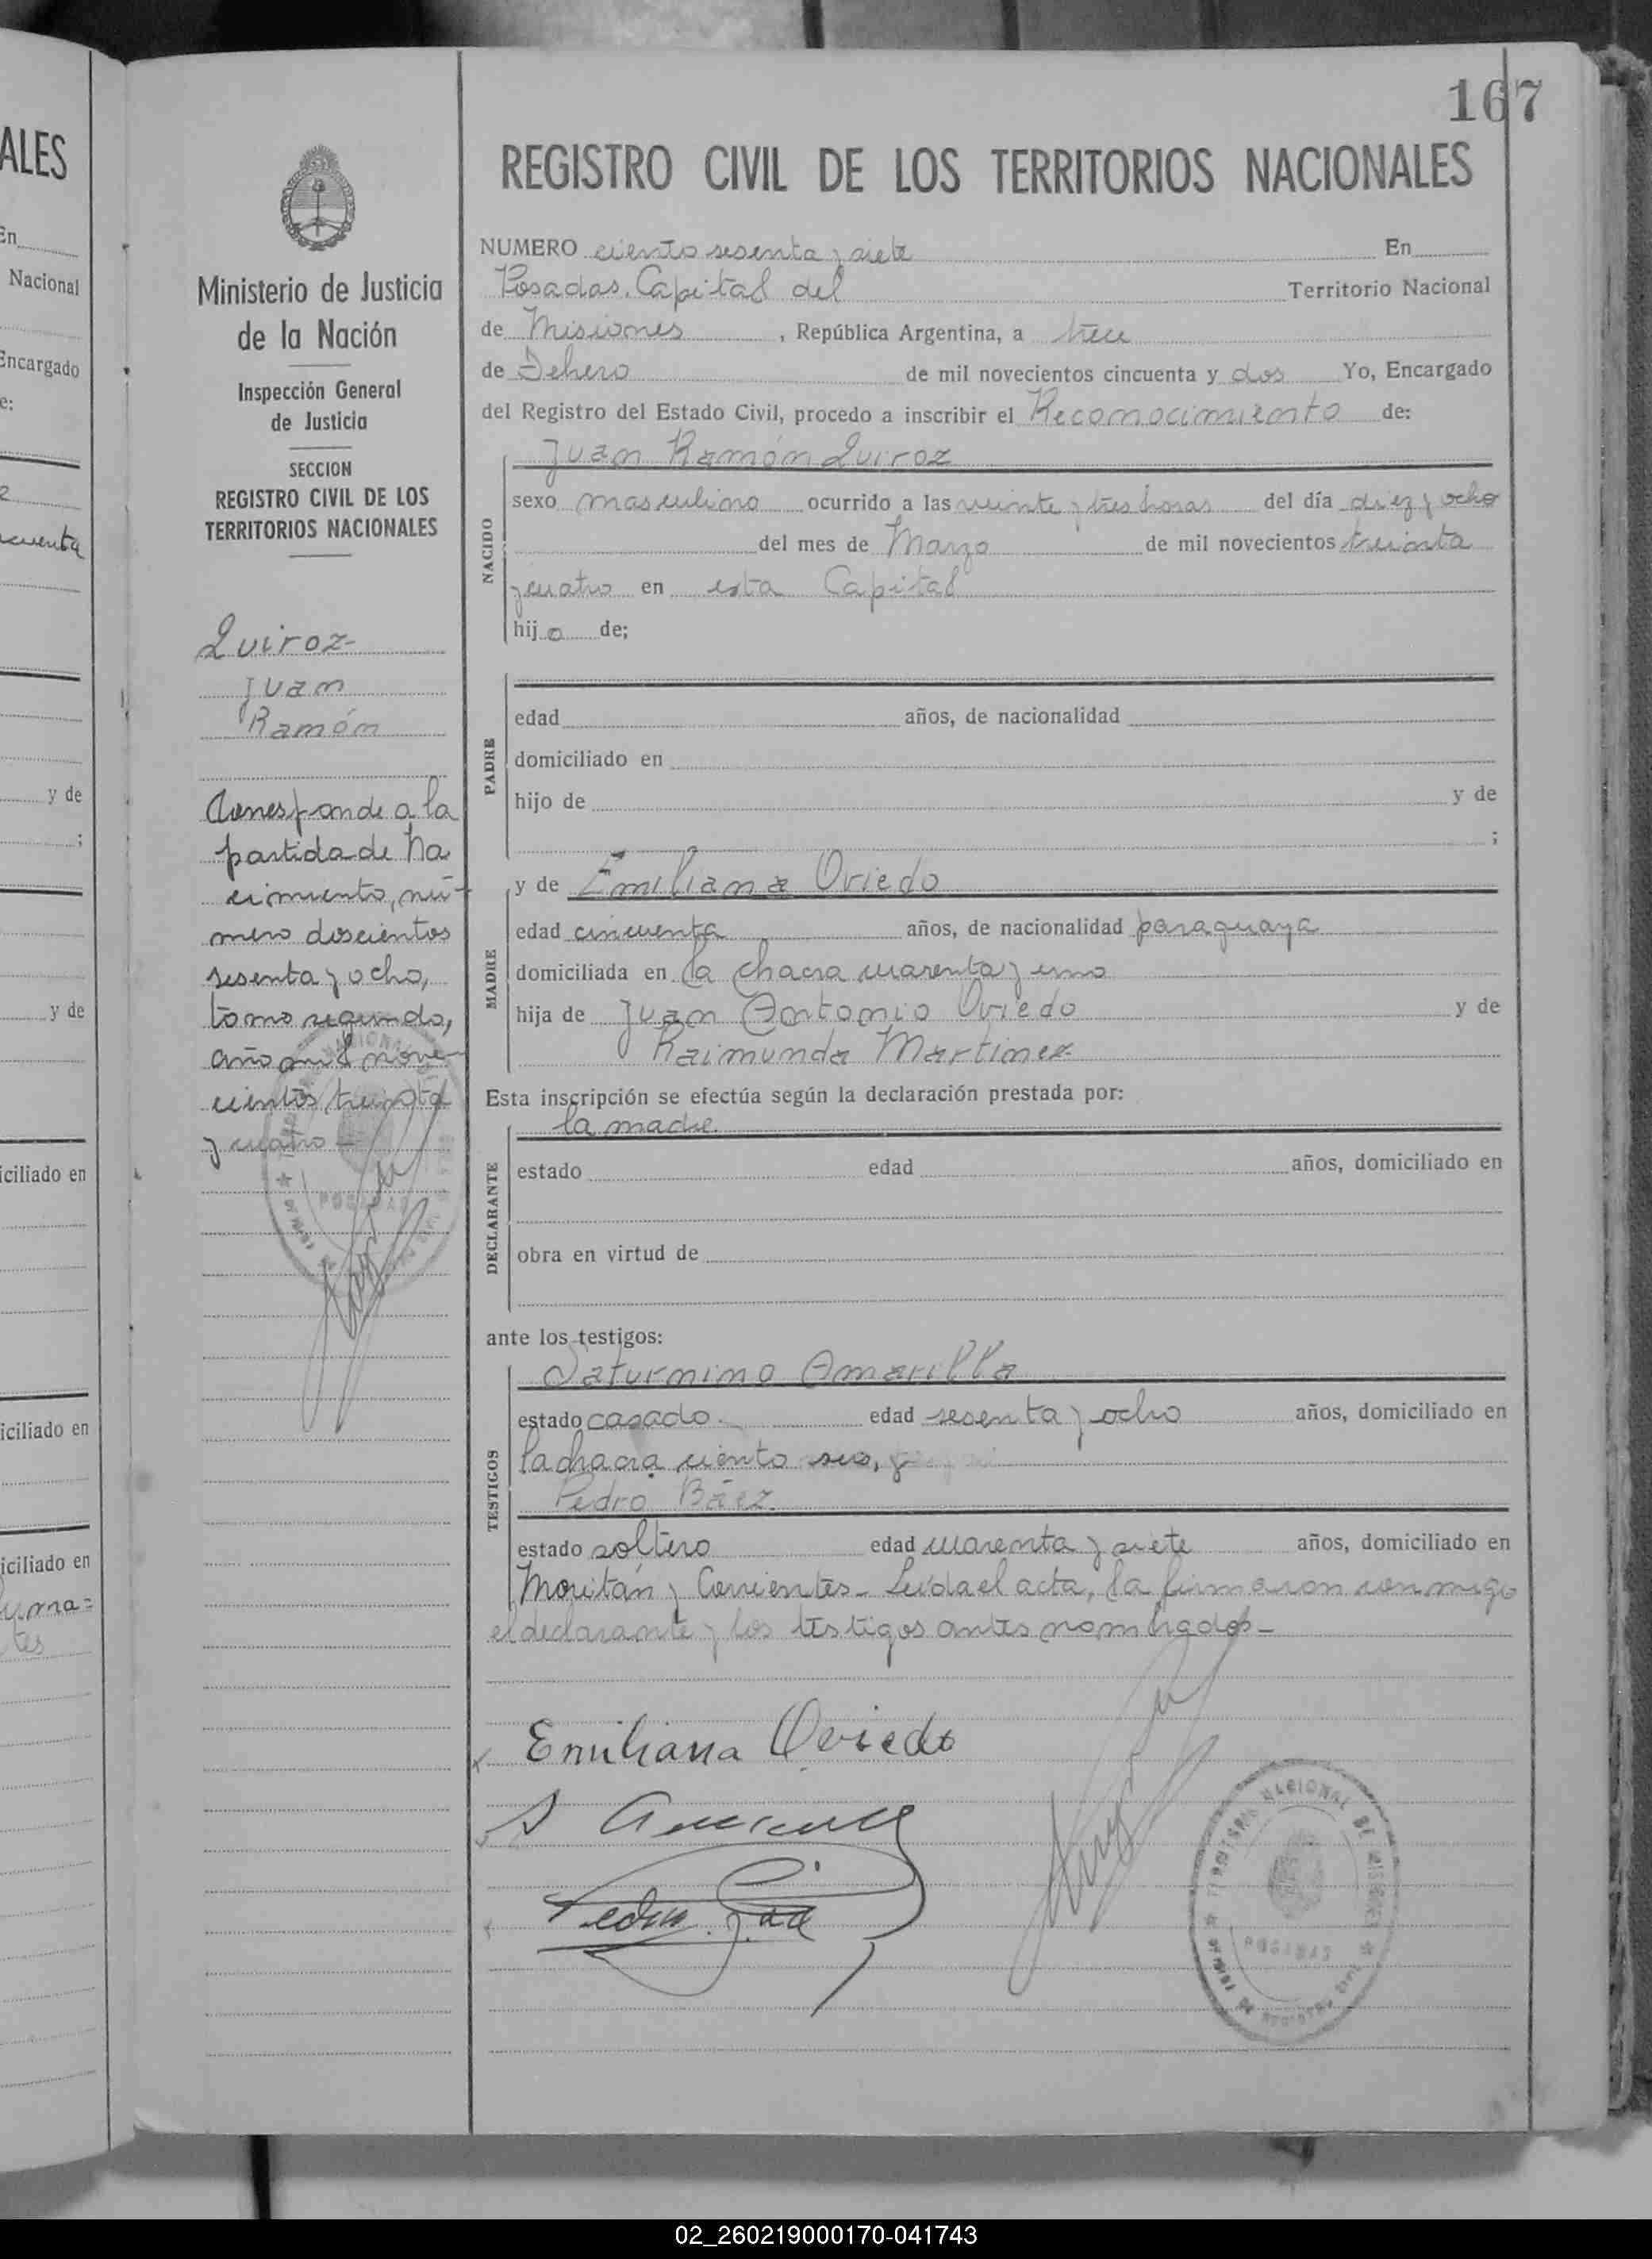 167
REGISTRO CIVIL DE LOS TERRITORIOS NACIONALES
Ministerio de Justicia
de la Nación
Inspección General
de Justicia
SECCION
REGISTRO CIVIL DE LOS
TERRITORIOS NACIONALES
Quiroz
Juan
Ramón
Corresponde a la
partida de Na
cimiento, nú-
mero doscientos
sesenta y ocho,
tomo segundo,
año mil nove-
cientos treinta
y cuatro-
NUMERO ciento sesenta y siete En
Posadas, Capital del Territorio Nacional
de Misiones , República Argentina, a trece
de Febrero de mil novecientos cincuenta y dos Yo, Encargado
del Registro del Estado Civil, procedo a inscribir el Reconocimiento de:
Juan Ramón Quiroz
NACIDO
sexo masculino ocurrido a las veinte y tres horas del día diez y ocho
del mes de Marzo de mil novecientos treinta
y cuatro en esta Capital
hijo de;
PADRE
edad años, de nacionalidad
domiciliado en
hijo de y de
;
MADRE
y de Emiliana Oviedo
edad cincuenta años, de nacionalidad paraguaya
domiciliada en la chacra cuarenta y uno
hija de Juan Antonio Oviedo y de
Raimunda Martinez
Esta inscripción se efectúa según la declaración prestada por:
la madre.
DECLARANTE
estado edad años, domiciliado en
obra en virtud de
ante los testigos:
TESTIGOS
Saturnino Amarilla
estado casado. edad sesenta y ocho años, domiciliado en
la chacra ciento seis, y
Pedro Báez.
estado soltero edad cuarenta y siete años, domiciliado en
Moritán y Corrientes- Leída el acta, la firmaron conmigo
el declarante y los testigos antes nombrados-
Emiliana Oviedo
POSADAS
02_260219000170-041743
ALES
En
Nacional
Encargado
e:
cuenta
y de
;
y de
iciliado en
iciliado en
iciliado en